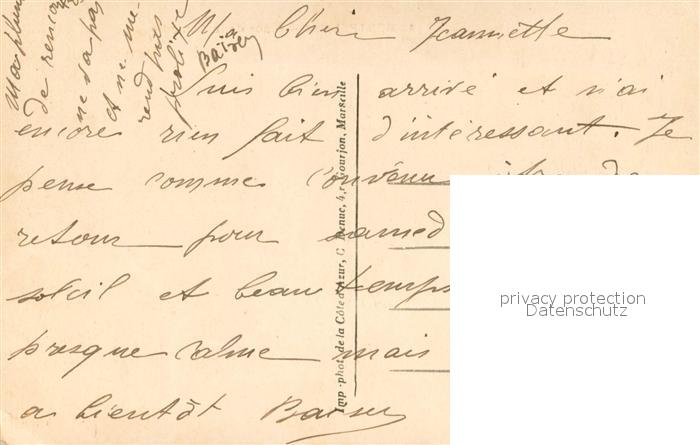 Ma chère Jeannette
Suis bien arrivé et n'ai
encore rien fait d'intéressant. Je
pense comme convenu être de
retour pour samed
soleil et beau temps
presque calme mais
a bientôt Baiser
Ma plume
de rencontre
ne va pas
et ne me
rend pas
prolixe
Baiser
Imp.-phot. de la Côte d'Azur, C. Gourjon, Marseille
privacy protection
Datenschutz